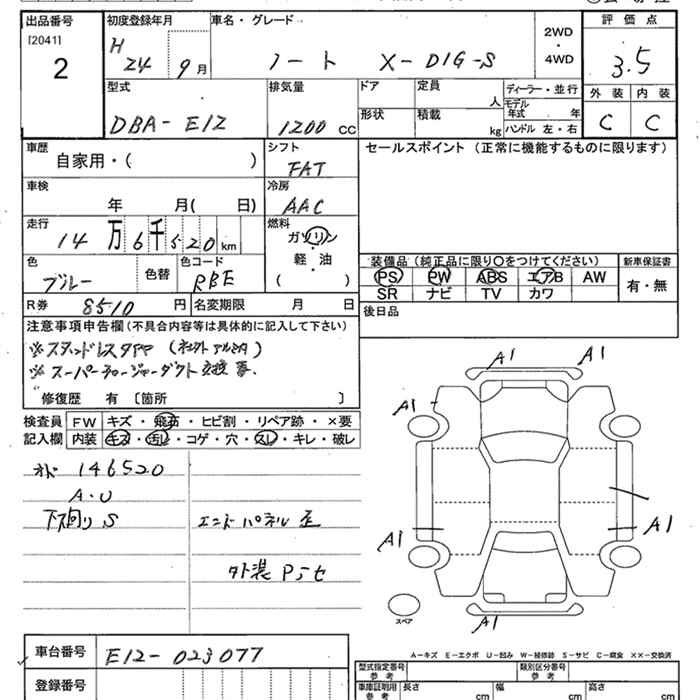 出品番号 初度登録年月 車名・グレード 評価点
[2041]
2
H 24 9月 ノート X-DIG-S 2WD・4WD 3.5
型式 排気量 ドア 定員 人 ディーラー・並行 外装 内装
DBA-E12 1200cc 形状 積載 kg モデル年式 年 C C
ハンドル 左・右
車歴 シフト セールスポイント (正常に機能するものに限ります)
自家用・( ) FAT
車検 冷房
年 月( 日) AAC
走行 燃料
14万6千520km ガソリン・軽・油
( )
色 色替 色コード
ブルー RBE
装備品 (純正品に限り○をつけてください) 新車保証書
PS PW ABS エアB AW 有・無
SR ナビ TV カワ
R券 8510円 名変期限 月 日 後日品
注意事項申告欄(不具合内容等は具体的に記入して下さい)
※スーパーチャージャーダクト交換
修復歴 有 〔箇所 〕
検査員 FW キズ・飛石・ヒビ割・リペア跡・×要
記入欄 内装 キズ・汚れ・コゲ・穴・スレ・キレ・破レ
146520
A・U
下回りS エンドパネル
外装
A1 A1
A1
A1 A1
A1
スペア
A-キズ E-エクボ U-凹み W-補修跡 S-サビ C-腐食 XX-交換済
車台番号 E12-023077
登録番号
型式指定番号 参考 類別区分番号 参考
車庫証明用 参考 長さ cm 幅 cm 高さ cm